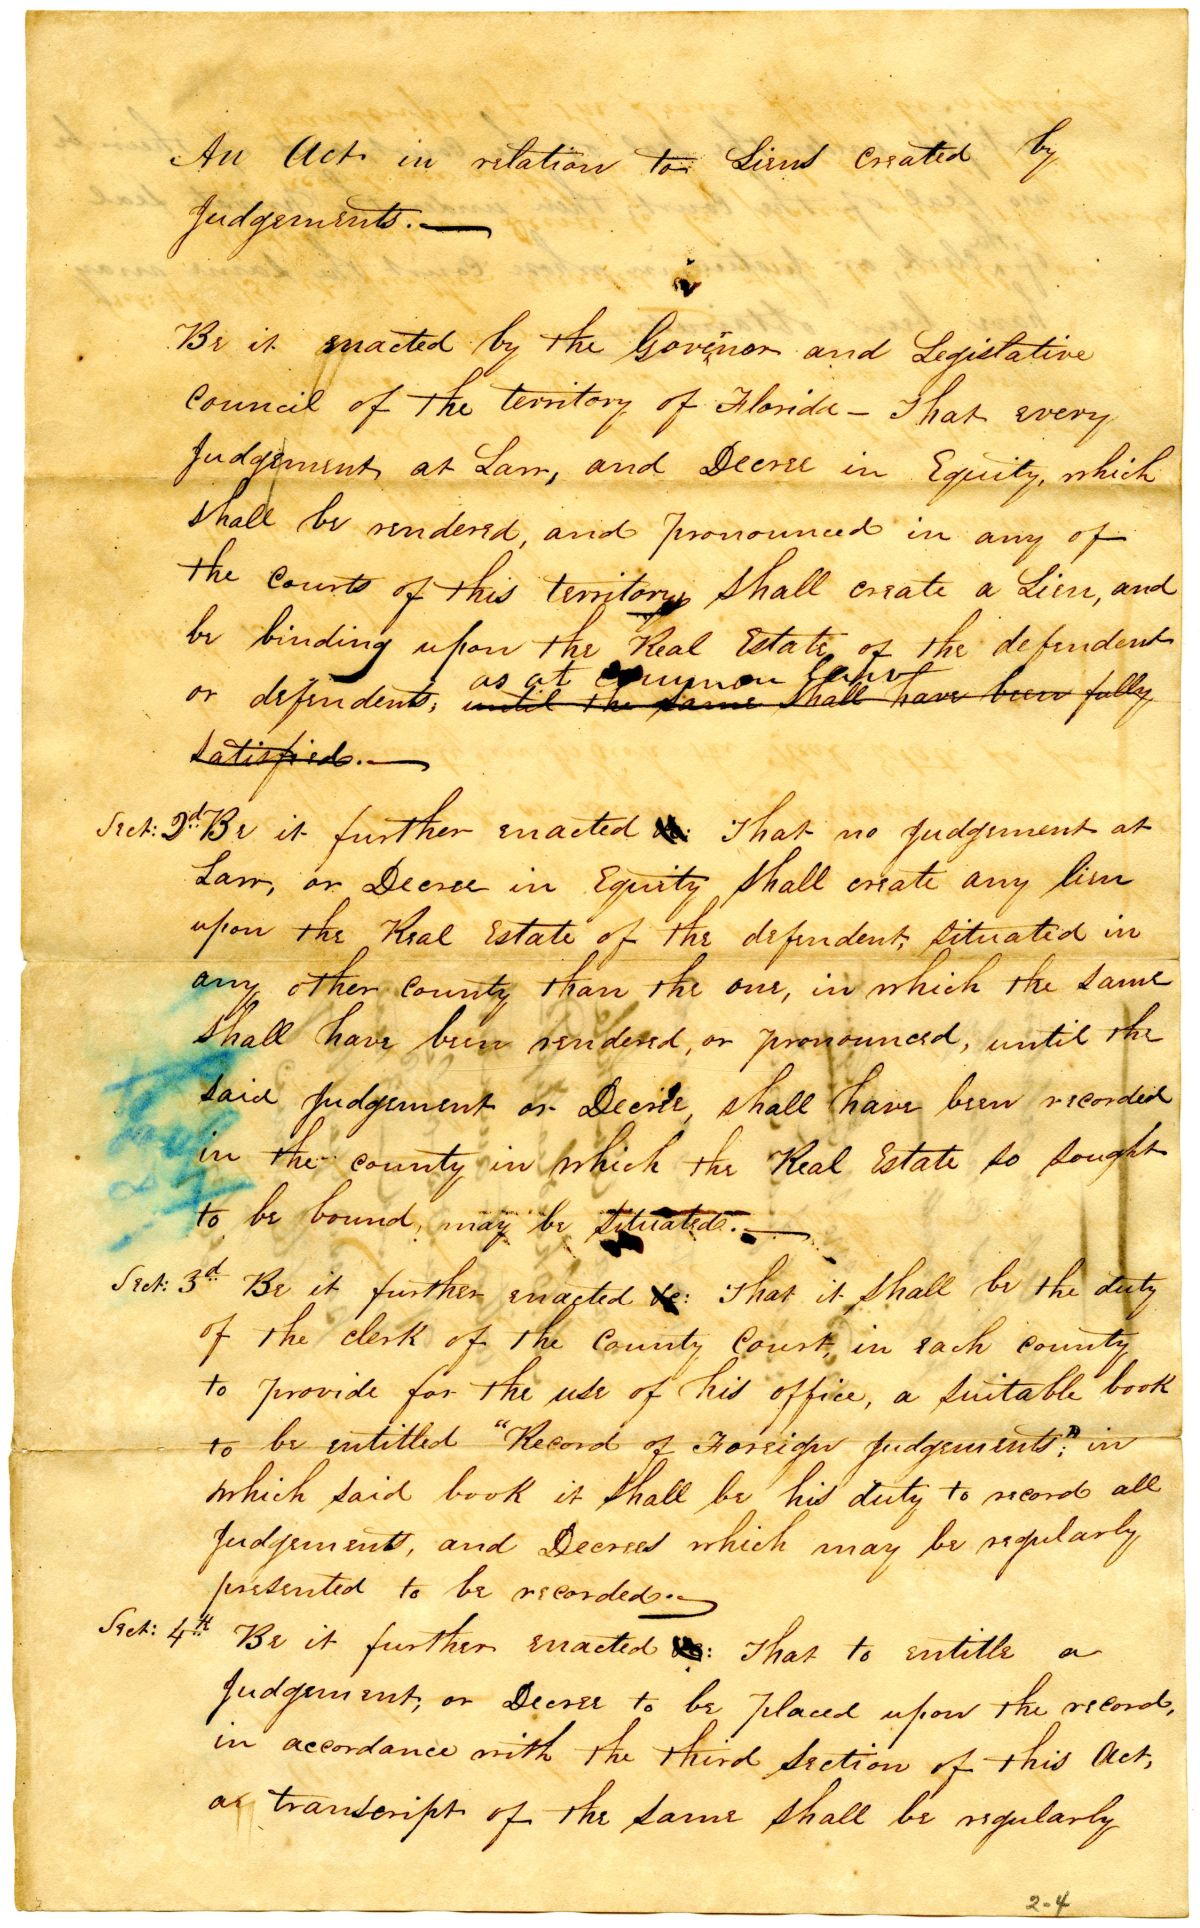 An Act in relation to Liens created by
Judgements.—
Be it enacted by the Governor and Legislative
Council of the territory of Florida – That every
Judgement at Law, and Decree in Equity, which
shall be rendered, and pronounced in any of
the Courts of this territory, shall create a Lien, and
be binding upon the Real Estate of the defendent
as at common Law
or defendents, until the same shall have been fully
satisfied.—
Sect: 2d Be it further enacted &c: That no Judgement at
Law, or Decree in Equity shall create any lien
upon the Real Estate of the defendent, situated in
any other county than the one, in which the same
shall have been rendered, or pronounced, until the
said Judgement or Decree, shall have been recorded
in the county in which the Real Estate so sought
to be bound, may be situated.—
Sect: 3d Be it further enacted &c: That it shall be the duty
of the clerk of the County Court, in each county
to provide for the use of his office, a suitable book
to be entitled "Record of Foreign Judgements," in
which said book it shall be his duty to record all
Judgements, and Decrees which may be regularly
presented to be recorded.—
Sect: 4th Be it further enacted &c: That to entitle a
Judgement, or Decree to be placed upon the record,
in accordance with the third section of this Act,
a transcript of the same shall be regularly
2-4